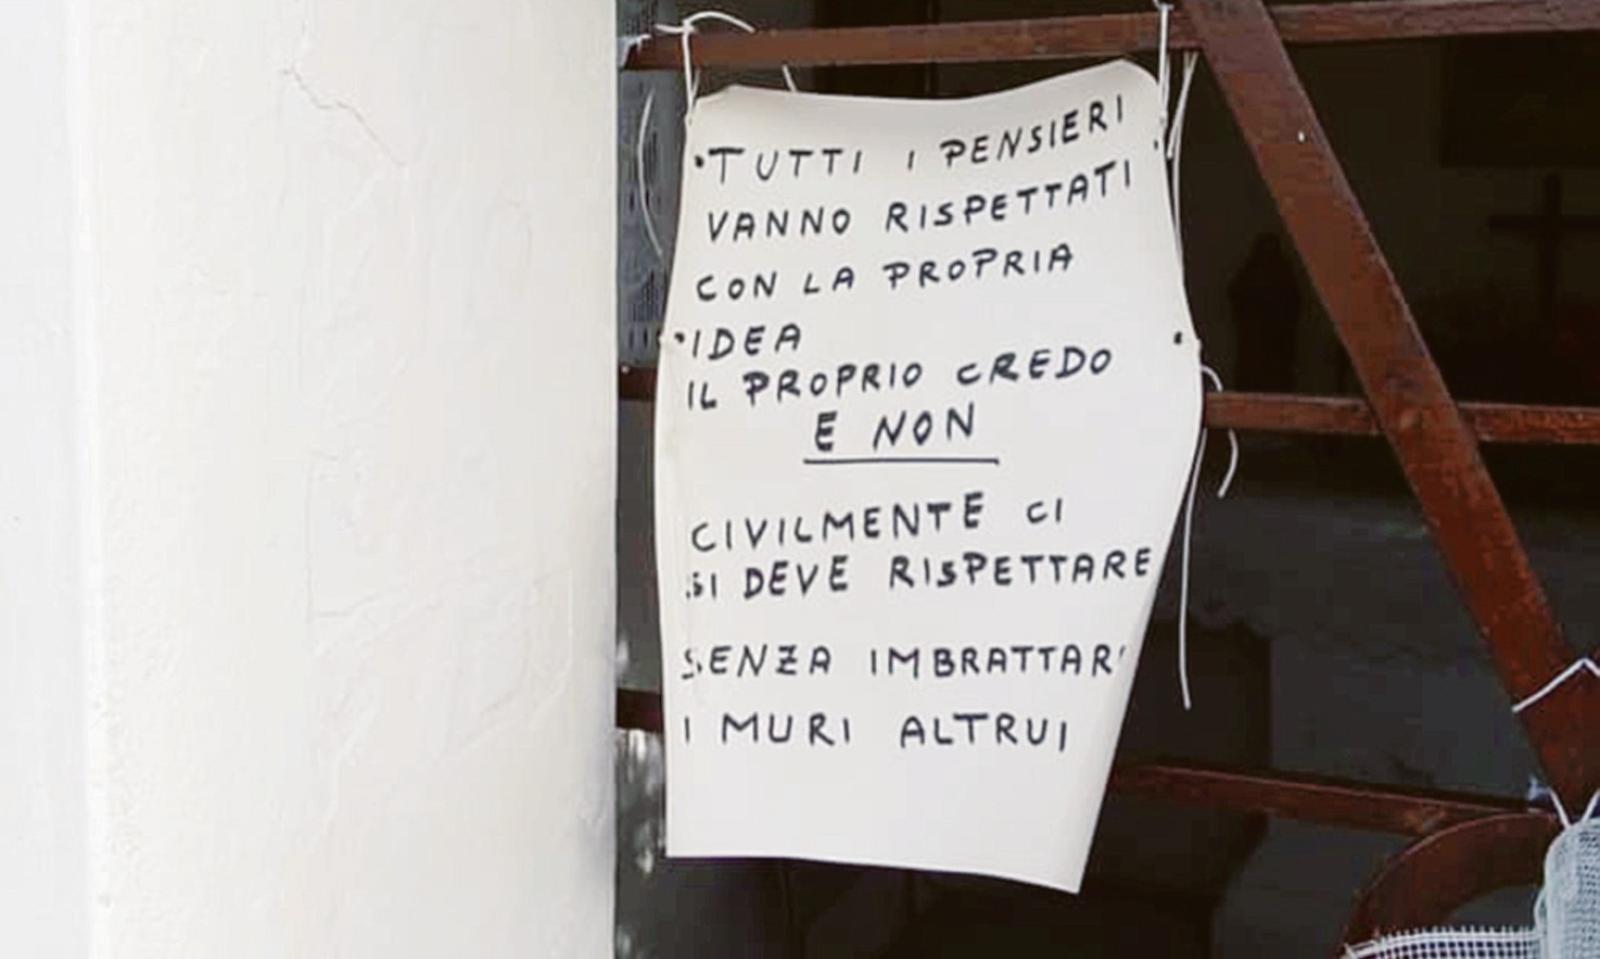 TUTTI I PENSIERI
VANNO RISPETTATI
CON LA PROPRIA
IDEA
IL PROPRIO CREDO
E NON
CIVILMENTE CI
SI DEVE RISPETTARE
SENZA IMBRATTAR'
I MURI ALTRUI